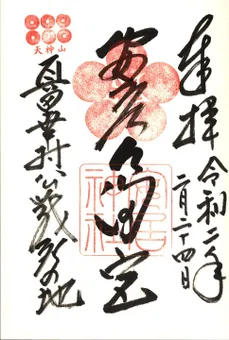 奉拝
令和二年
二月二十四日
安居天満宮
安居神社
天神山
真田幸村公戦死の地